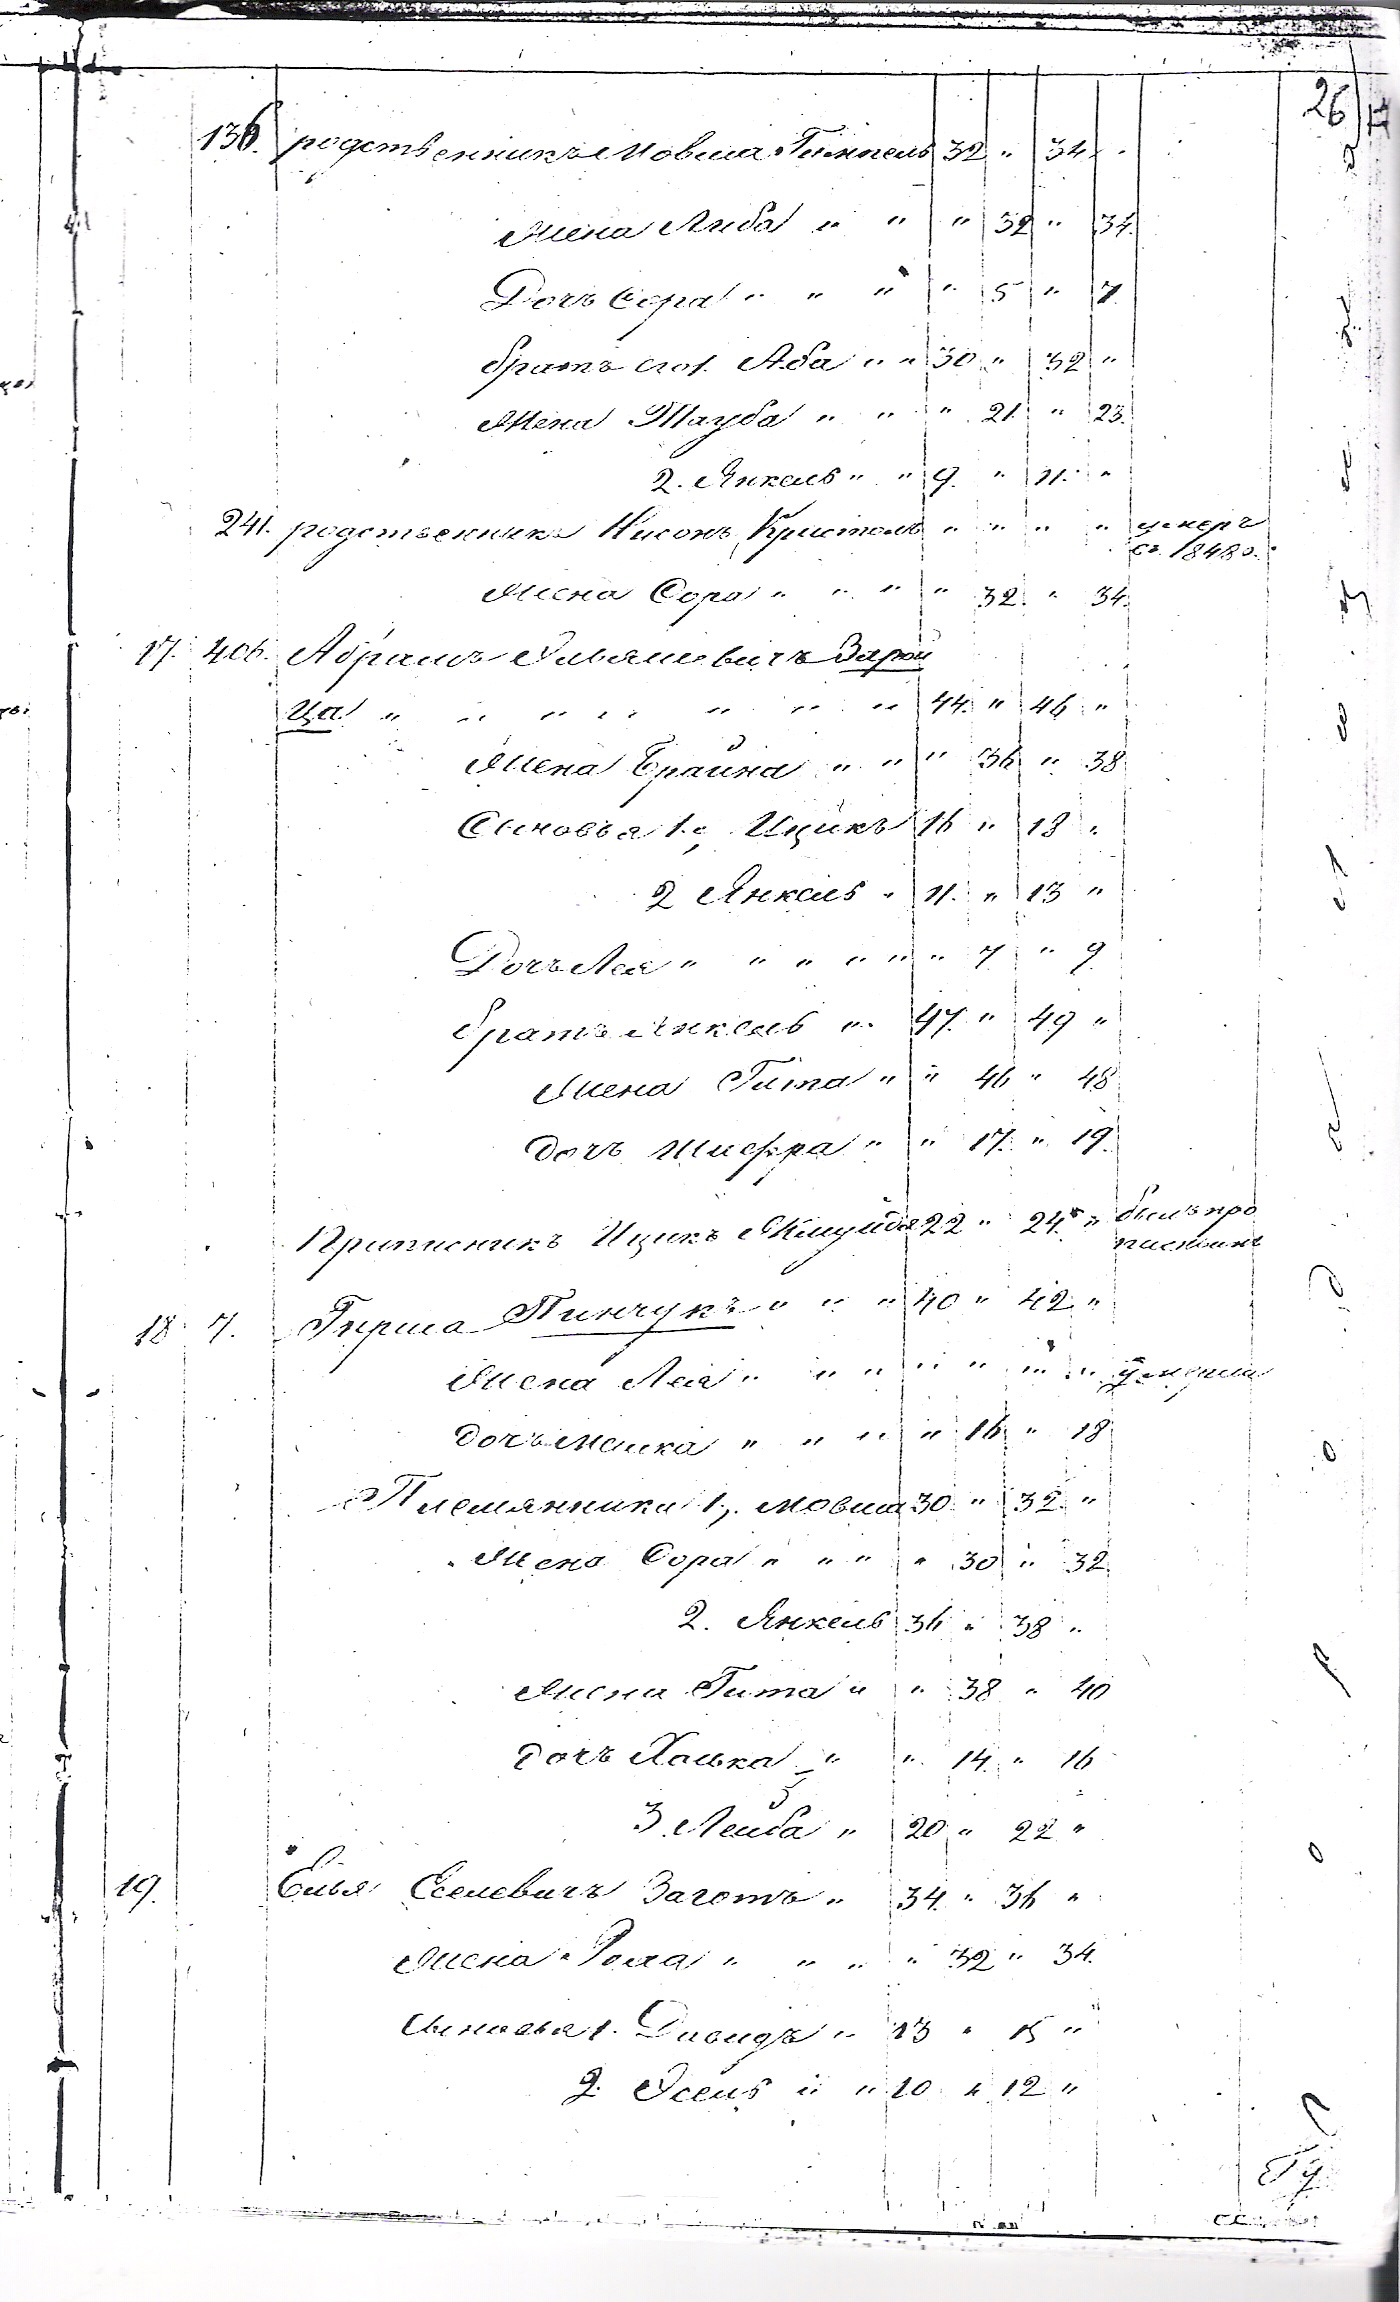 26
136. родственникъ Мовша Гиммель 32 " 34 "
Жена Либа " " " 32 " 34.
Дочь Сора " " " " 5 " 7.
братъ его 1. Аба " " 30 " 32 "
Жена Тауба " " " 21. " 23.
2. Янкель " " 9. " 11. "
241. родственникъ Нисонъ Кристаль " " " " умеръ
съ 1848 г.
Жена Сора " " " " 32. " 34.
17. 406. Абрамъ Эльяшевичъ Зарой
ца " " " " " " " 44. " 46 "
Жена Брайна " " " 36 " 38
Сыновья 1. Ицикъ 16 " 18 "
2 Янкель " 11. " 13 "
Дочь Лея " " " " " " 7 " 9
братъ Янкель " 47. " 49 "
Жена Гита " " 46 " 48
дочь Шифра " " 17. " 19.
Приписникъ Ицикъ 22 " 24. " былъ про
писанъ
18 7. Гирша Пинчукъ " " " 40 " 42 "
Жена Лея " " " " " " " умерла
дочь Малка " " " " 16 " 18
Племянники 1. Мовша 30. " 32. "
Жена Сора " " " " 30 " 32.
2. Янкель 36 " 38 "
Жена Гита " " 38 " 40
дочь Хаька " " 14. " 16
3 Лейба " 20 " 22 "
19. Елья Еселевичъ Заготъ " 34. " 36 "
Жена Роша " " " " 32 " 34.
Сыновья 1. Давидъ " 13 " 15 "
2. Эсель " " 10 " 12 "